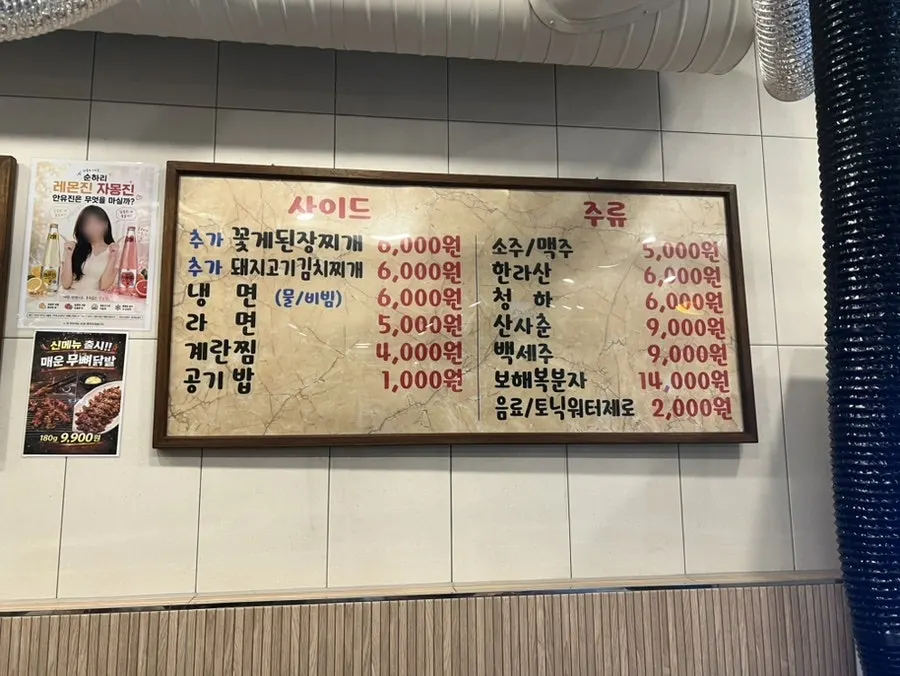 순하리
레몬진 자몽진
안유진은 무엇을 마실까?
신메뉴 출시!!
매운 무뼈닭발
180g 9,900원
사이드
추가 꽃게된장찌개 6,000원
추가 돼지고기김치찌개 6,000원
냉 면 (물/비빔) 6,000원
라 면 5,000원
계란찜 4,000원
공기밥 1,000원
주류
소주/맥주 5,000원
한라산 6,000원
청 하 6,000원
산사춘 9,000원
백세주 9,000원
보해복분자 14,000원
음료/토닉워터제로 2,000원